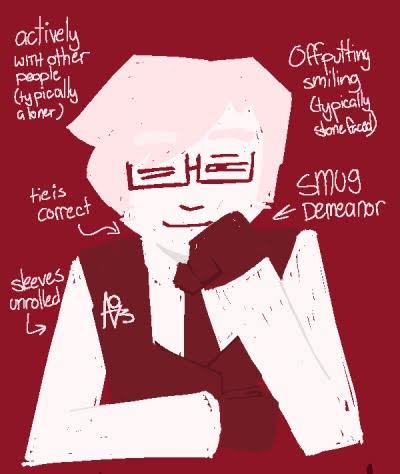 actively
with other
people
(typically
a loner)
Offputting
smiling
(typically
stone faced)
tie is
correct
smug
Demeanor
sleeves
unrolled